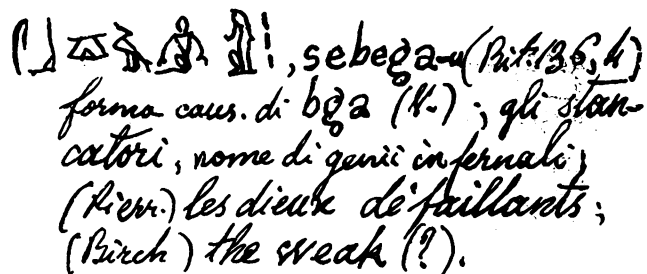 , sebega-u (Rit. 136, 4)
forma caus. di bga (V.); gli stan-
catori, nome di genii infernali;
(Pierr.) les dieux défaillants;
(Birch) the weak (?).